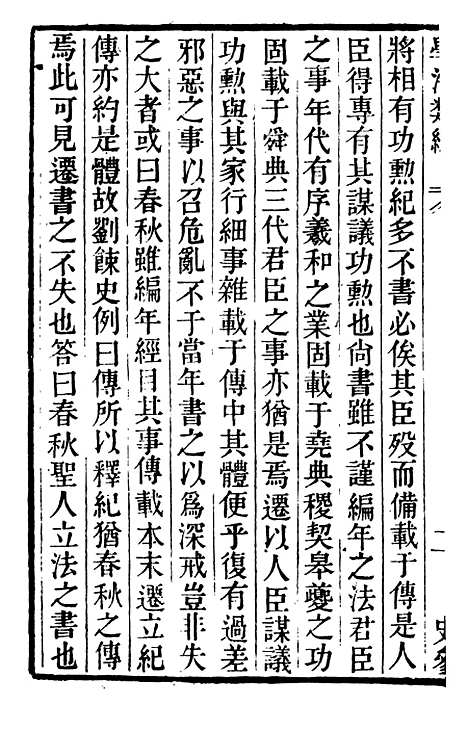 將相有功勲紀多不書必俟其臣殁而備載于傳是人
臣得專有其謀議功勲也尙書雖不謹編年之法君臣
之事年代有序羲和之業固載于堯典稷契皋夔之功
固載于舜典三代君臣之事亦猶是焉遷以人臣謀議
功勲與其家行細事雜載于傳中其體便乎復有過差
邪惡之事以召危亂不于當年書之以爲深戒豈非失
之大者或曰春秋雖編年經目其事傳載本末遷立紀
傳亦約是體故劉餗史例曰傳所以釋紀猶春秋之傳
焉此可見遷書之不失也答曰春秋聖人立法之書也